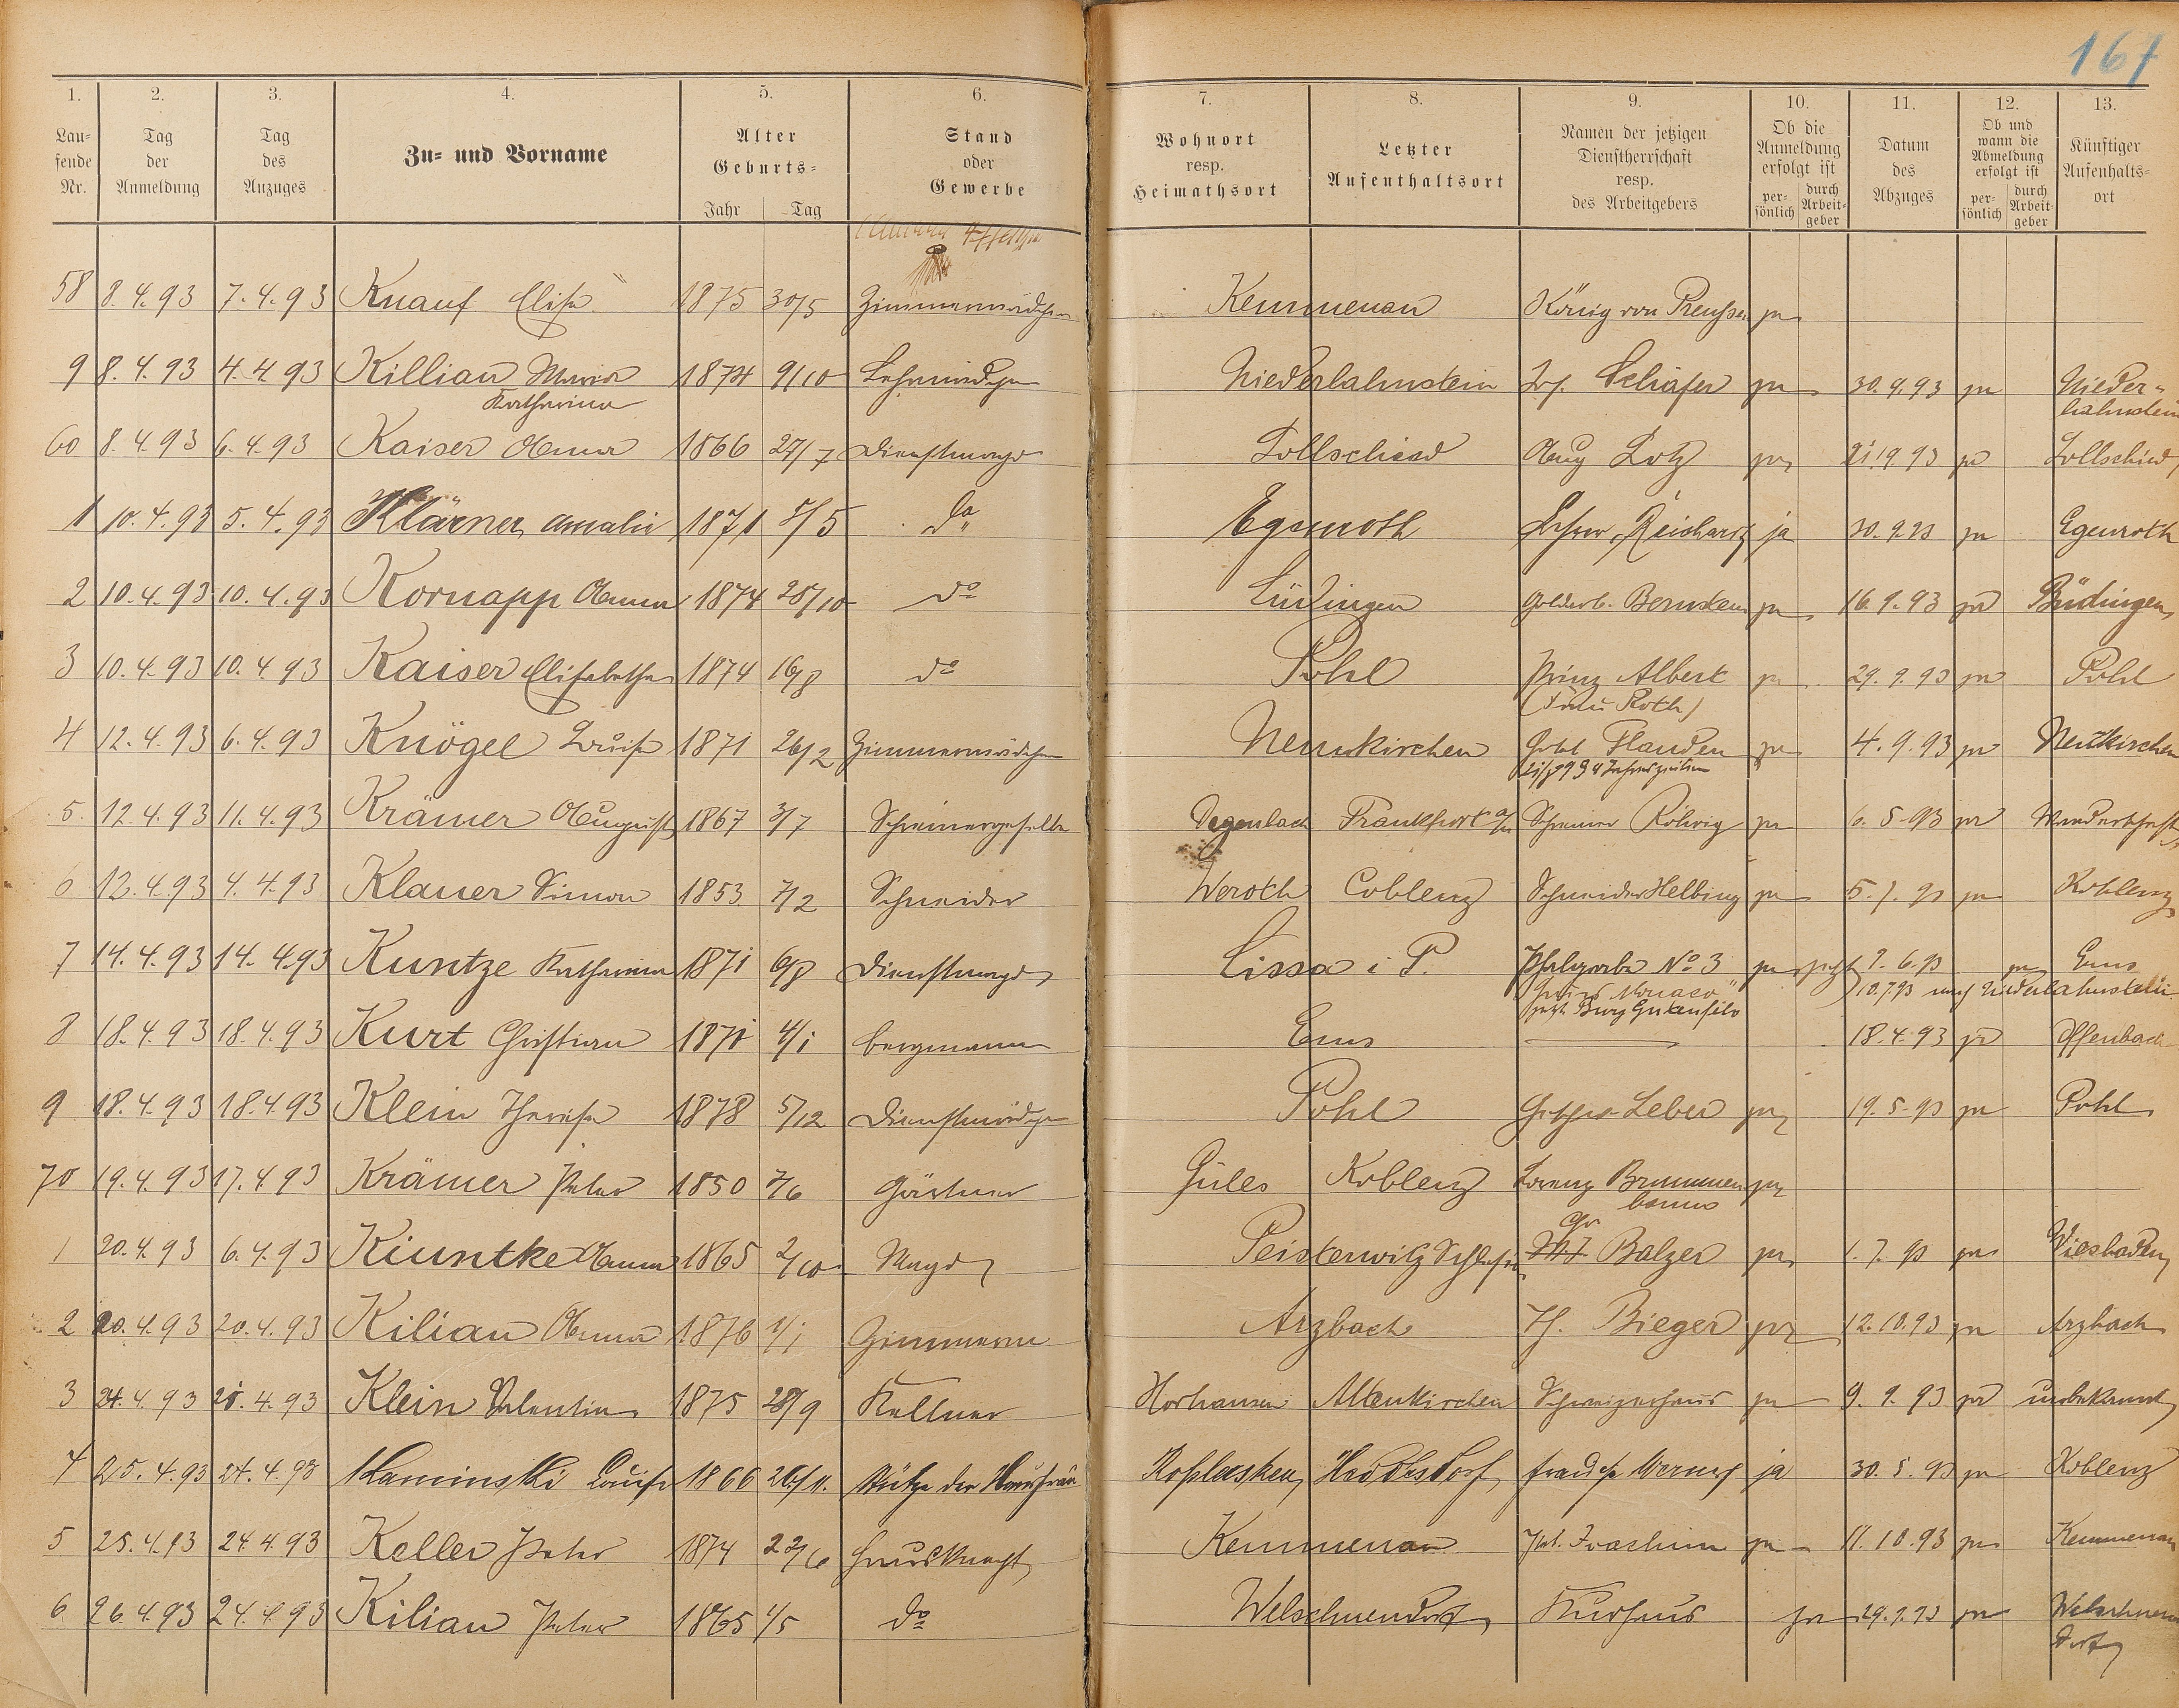 167
1. 2. 3. 4. 5. 6. 7. 8. 9. 10. 11. 12. 13.
Lau-
fende
Nr.
Tag
der
Anmeldung
Tag
des
Anzuges
Zu- und Vorname
Alter
Geburts-
Jahr Tag
Stand
oder
Gewerbe
Wohnort
resp.
Heimathsort
Letzter
Aufenthaltsort
Namen der jetzigen
Dienstherrschaft
resp.
des Arbeitgebers
Ob die
Anmeldung
erfolgt ist
per-
sönlich
durch
Arbeit-
geber
Datum
des
Abzuges
Ob und
wann die
Abmeldung
erfolgt ist
per-
sönlich
durch
Arbeit-
geber
Künftiger
Aufenhalts-
ort
58 8.4.93 7.4.93 Knauf Elise 1875 30/5 Zimmermädchen Kemmenau König von Preußen ja
9 8.4.93 4.4.93 Killian Maria 1874 9/10 Lehrmädchen Niederlahnstein Jos. Schäfer ja 30.9.93 ja Nieder-
Katharina lahnstein
60 8.4.93 6.4.93 Kaiser Anna 1866 27/7 Dienstmagd Lollschied Aug Lotz ja 21.9.93 ja Lollschied
1 10.4.93 5.4.93 Klärner Amalie 1871 5/5 do Egenroth Lehrer Reichard ja 30.9.93 ja Egenroth
2 10.4.93 10.4.93 Kornapp Anna 1874 25/10 do Büdingen Goldarb. Bernstein ja 16.9.93 ja Büdingen
3 10.4.93 10.4.93 Kaiser Elisabetha 1874 16/8 do Pohl Prinz Albert ja 29.9.93 ja Pohl
(Frau Roth)
4 12.4.93 6.4.93 Knögel Luise 1871 26/2 Zimmermädchen Neunkirchen Hotel Flandern ja 4.9.93 ja Neunkirchen
4 Jahreszeiten
5 12.4.93 11.4.93 Krämer August 1867 3/7 Schreinergeselle Degenbach Frankfurt a/M Schreiner Röhrig ja 6.5.93 ja Wanderschaft
6 12.4.93 4.4.93 Klauer Simon 1853 7/2 Schneider Weroth Coblenz Schneider Helbing ja 5.7.93 ja Koblenz
7 14.4.93 14.4.93 Kuntze Katharina 1871 6/8 Dienstmagd Lissa i P. No 3 ja 9.6.93 ja Ems
"Monaco" 10.7.93 nach Niederlahnstein
jetzt Burg Gutenfels
8 18.4.93 18.4.93 Kurt Christian 1871 4/1 Bergmann Ems 18.4.93 ja Offenbach
9 18.4.93 18.4.93 Klein Therese 1878 5/12 Dienstmädchen Pohl Leber ja 19.5.93 ja Pohl
70 19.4.93 17.4.93 Krämer Peter 1850 7/6 Gärtner Güles Koblenz Lorenz Brummen- ja
baum
1 20.4.93 6.4.93 Kiuntke Anna 1865 2/10 Magd Peisterwitz Schlesien Chr Balzer ja 1.7.93 ja Wiesbaden
2 20.4.93 20.4.93 Kilian Anna 1876 1/1 Arzbach Th. Bieger ja 12.10.93 ja Arzbach
3 24.4.93 21.4.93 Klein Valentin 1875 28/9 Kellner Horhausen Altenkirchen Schweizerhaus ja 9.9.93 ja unbekannt
4 25.4.93 24.4.93 Kaminski Louise 1866 26/11. Stütze der Hausfrau Koslasken Heddesdorf Werner ja 30.5.93 ja Koblenz
5 25.4.93 24.4.93 Keller Peter 1874 22/6 Hausknecht Kemmenau Joachim ja 11.10.93 ja Kemmenau
6 26.4.93 24.4.93 Kilian Peter 1865 1/5 do Welschneudorf Kurhaus ja 29.9.93 ja Welschneu-
dorf